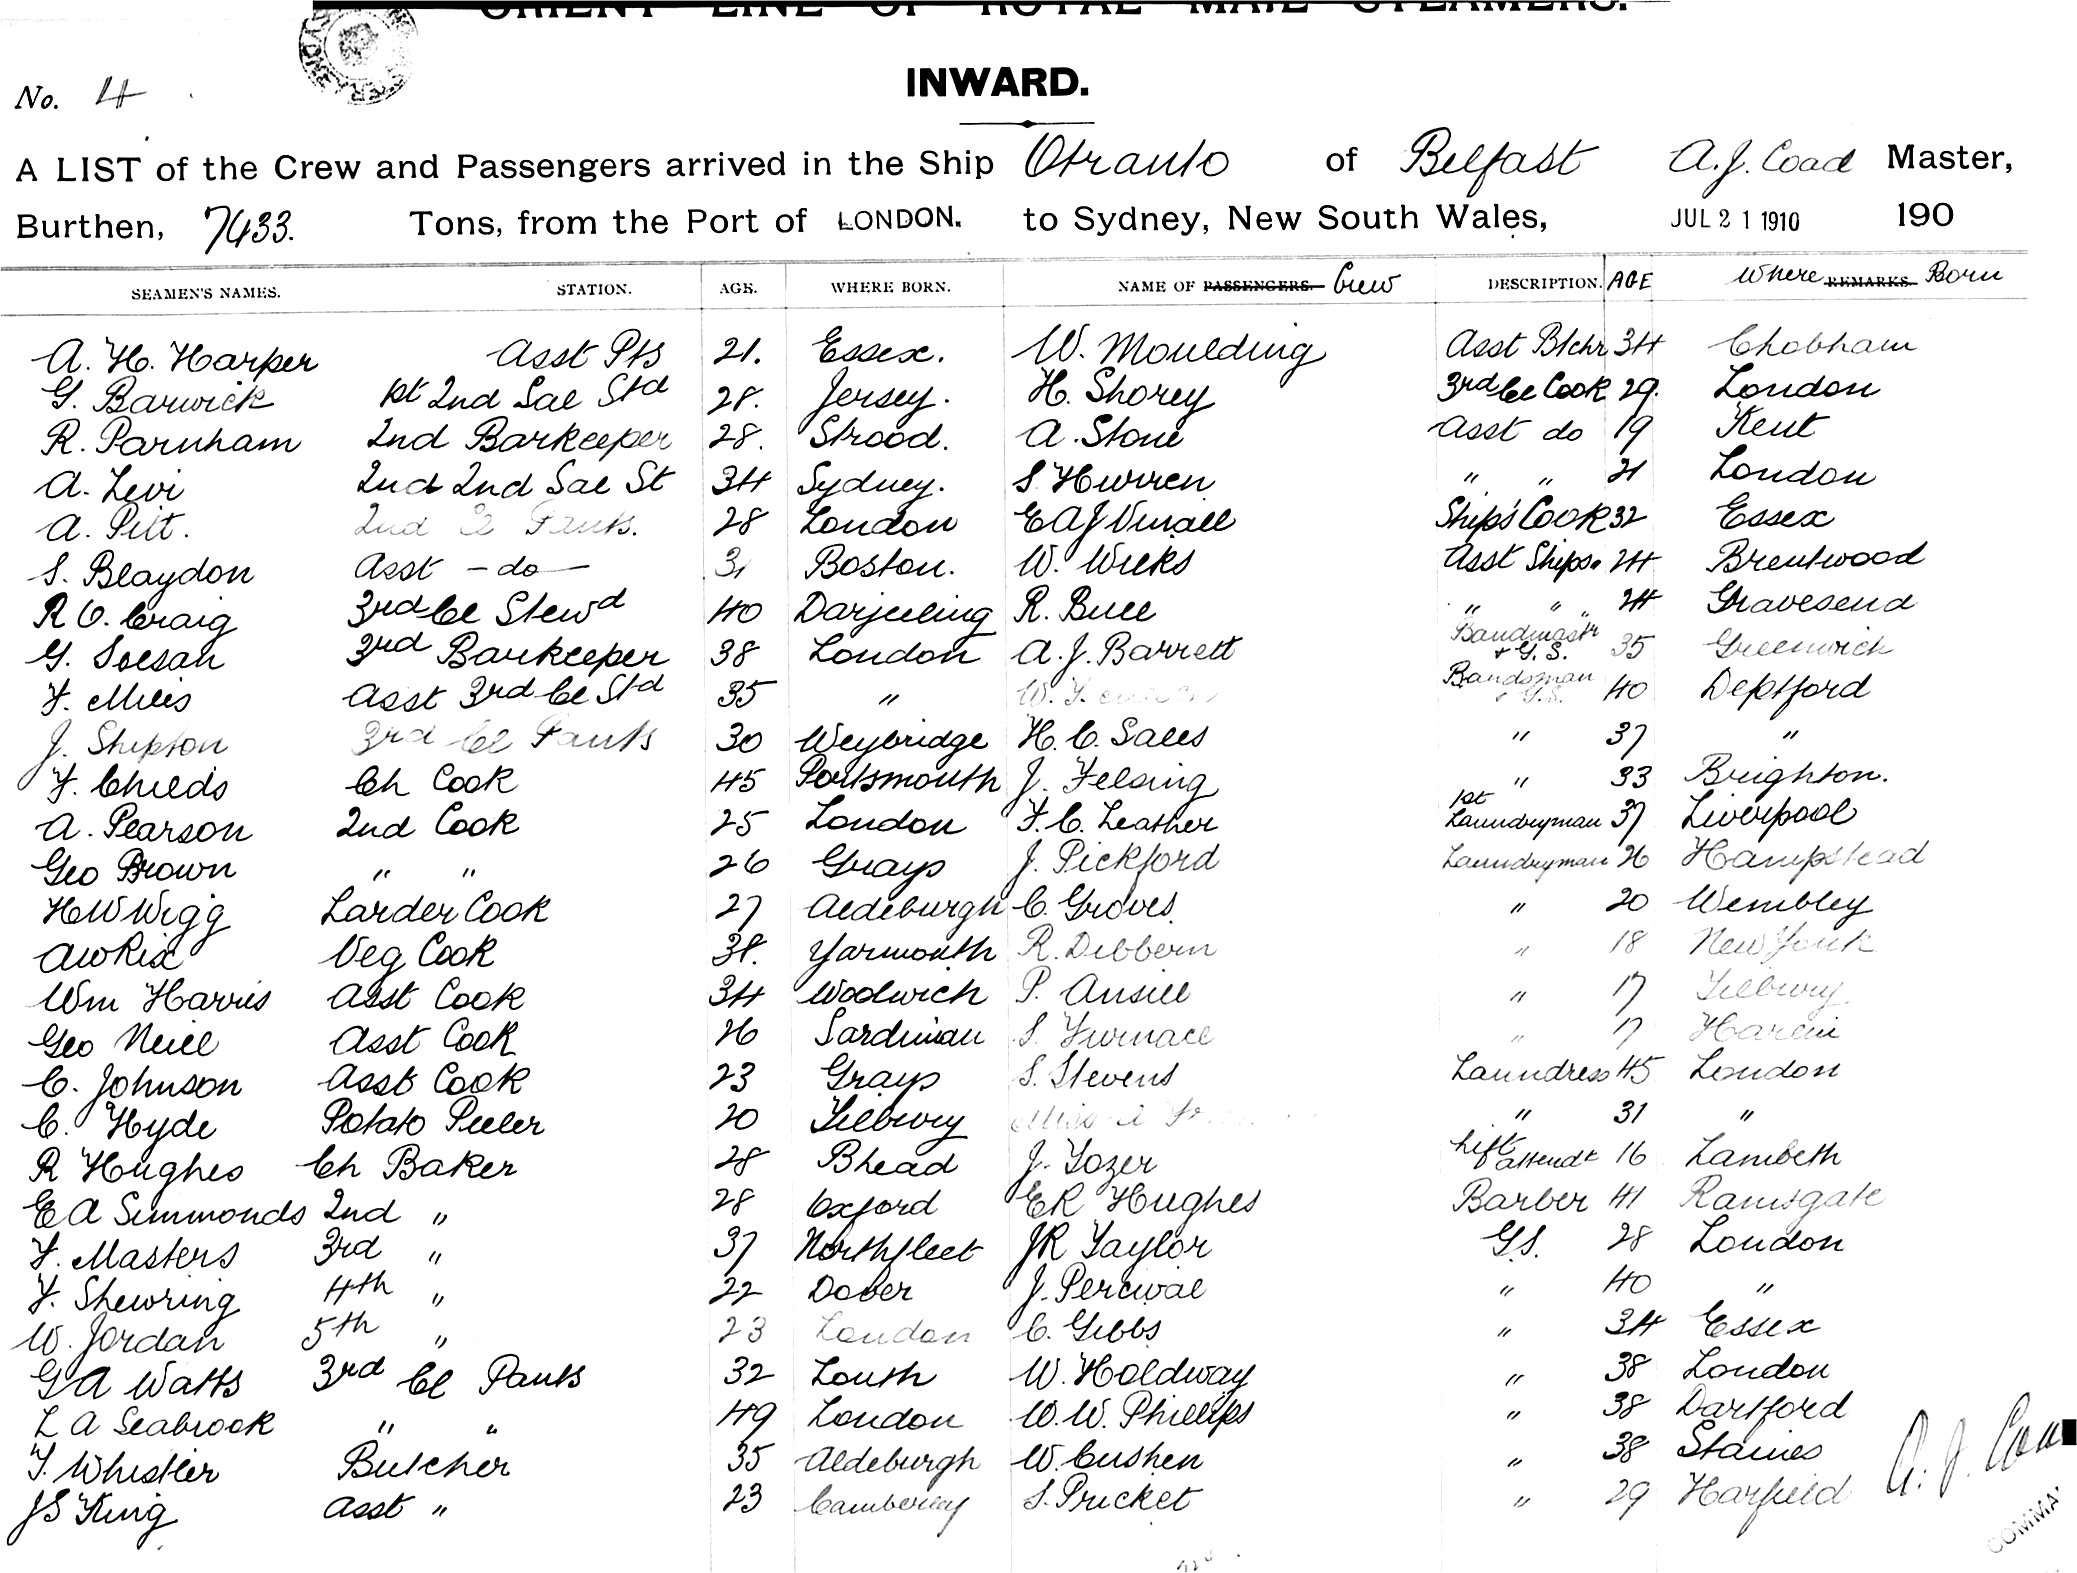 ORIENT LINE OF ROYAL MAIL STEAMERS.
INWARD.
No. 4
A LIST of the Crew and Passengers arrived in the Ship Otranto of Belfast A. J. Coad Master,
Burthen, 7433. Tons, from the Port of LONDON. to Sydney, New South Wales, JUL 21 1910 190
SEAMEN'S NAMES. STATION. AGE. WHERE BORN. NAME OF PASSENGERS. Crew DESCRIPTION. AGE Where REMARKS. Born
A. H. Harper Asst Pts 21. Essex. W. Moulding Asst Btchr 34 Chobham
G. Barwick 1st 2nd Sal Std 28. Jersey. H. Shorey 3rd Cl Cook 29. London
R. Parnham 2nd Barkeeper 28. Strood. A. Stone Asst do 19 Kent
A. Levi 2nd 2nd Sal St 34 Sydney. S Hurren " " 21 London
A. Pitt. 2nd Cl Pants. 28 London E A J Vinall Ship's Cook 32 Essex
S. Blaydon Asst - do - 31 Boston. W. Wicks Asst Ships " 24 Brentwood
R C. Craig 3rd Cl Stewd 40 Darjeeling R. Bull " " " 24 Gravesend
G. Soesan 3rd Barkeeper 38 London A. J. Barrett Bandmastr & G. S. 35 Greenwich
F. Miles Asst 3rd Cl Std 35 " W. Bandsman & G.S. 40 Deptford
J. Shipton 3rd Cl Pants 30 Weybridge H. C. Sales " 37 "
F. Childs Ch Cook 45 Portsmouth J. Felsing " 33 Brighton.
A. Pearson 2nd Cook 25 London F. C. Leather 1st Laundryman 37 Liverpool
Geo Brown " " 26 Grays J. Pickford Laundryman 26 Hampstead
H W Wigg Larder Cook 27 Aldeburgh C. Groves. " 20 Wembley
A W Rix Veg Cook 38. Yarmouth R. Dibbern " 18 New York
Wm Harris Asst Cook 34 Woolwich P. Ansill " 17 Tilbury.
Geo Neill Asst Cook 26 Sardinian S. Furnace " 17
C. Johnson Asst Cook 23 Grays S. Stevens Laundress 45 London
C. Hyde Potato Peeler 20 Tilbury Miss A " 31 "
R Hughes Ch Baker 28 Bhead J. Tozer Lift attendt 16 Lambeth
E A Simmonds 2nd " 28 Oxford E R Hughes Barber 41 Ramsgate
F. Masters 3rd " 37 Northfleet J R Taylor G S. 28 London
F. Shewring 4th " 22 Dover J. Percival " 40 "
W. Jordan 5th " 23 London C. Gibbs " 34 Essex
G A Watts 3rd Cl Pants 32 Louth W. Holdway " 38 London
L A Seabrook " " 49 London W. W. Phillips " 38 Dartford
T. Whistler Butcher 35 Aldeburgh W. Cushen " 38 Staines
J S King Asst " 23 Camberley S. Pricket " 29 Harfield
A. J. Coad
COMMA